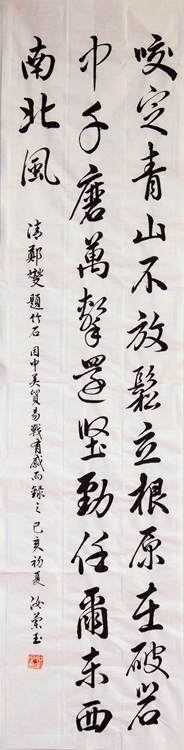 咬定青山不放鬆立根原在破岩
中千磨萬擊還堅勁任爾東西
南北風
清鄭燮題竹石因中美貿易戰有感而錄之己亥初夏汝蘭玉